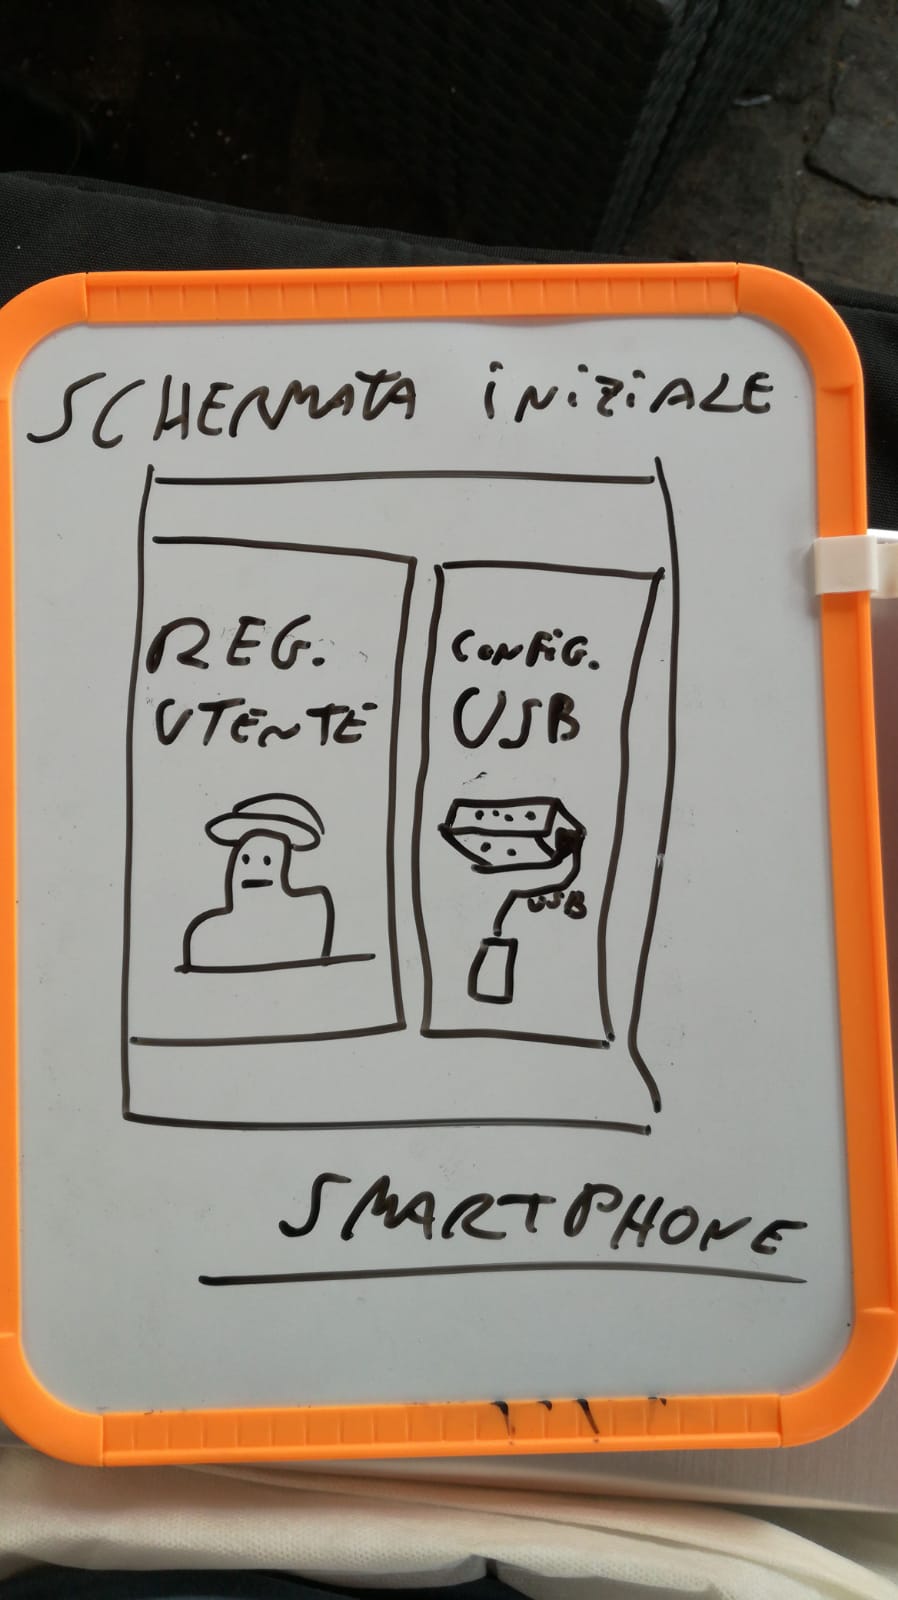 SCHERMATA iNiZiALE
REG.
UTENTE
CONFiG.
USB
USB
SMARTPHONE